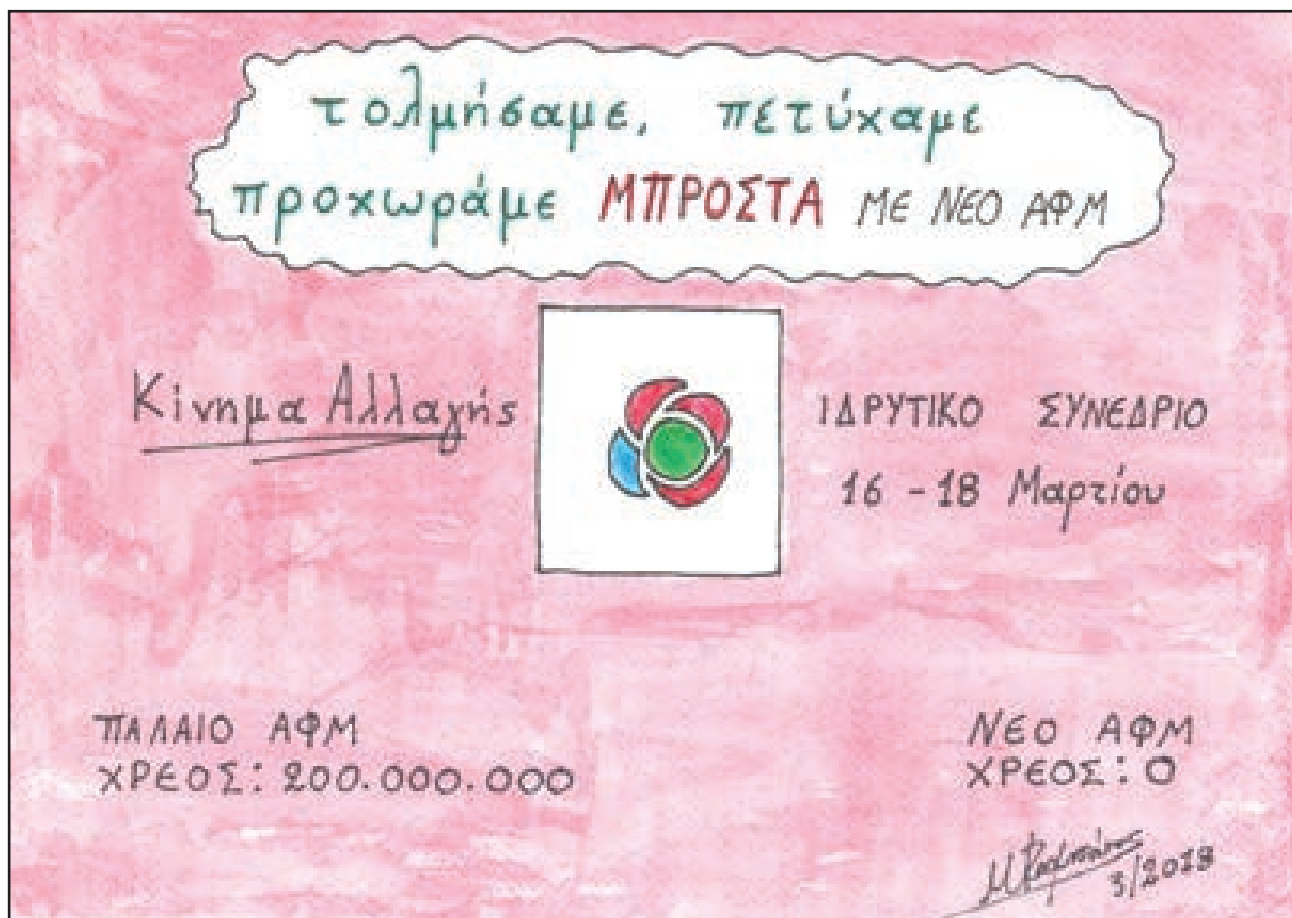 τολμήσαμε, πετύχαμε
προχωράμε ΜΠΡΟΣΤΑ ΜΕ ΝΕΟ ΑΦΜ
Κίνημα Αλλαγής
ΙΔΡΥΤΙΚΟ ΣΥΝΕΔΡΙΟ
16 - 18 Μαρτίου
ΠΑΛΑΙΟ ΑΦΜ
ΧΡΕΟΣ: 200.000.000
ΝΕΟ ΑΦΜ
ΧΡΕΟΣ: 0
3/2018